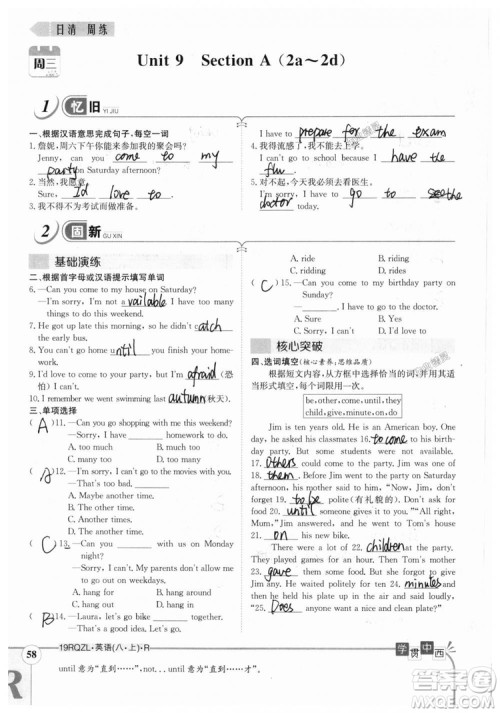 日清 周练
周三
Unit 9 Section A（2a～2d）
1 忆旧 YI JIU
一、根据汉语意思完成句子，每空一词
1. 詹妮，周六下午你能来参加我的聚会吗？
Jenny, can you come to my
party on Saturday afternoon?
2. 当然，我愿意。
Sure, I'd love to.
3. 我不得不为考试而做准备。
I have to prepare for the exam
4. 我得流感了，我不能去上学。
I can't go to school because I have the
flu.
5. 对不起，今天我必须去看医生。
I'm sorry, I have to go to see the
doctor today.
2 固新 GU XIN
基础演练
二、根据首字母或汉语提示填写单词
6. —Can you come to my house on Saturday?
—I'm sorry, I'm not available. I have too many
things to do this weekend.
7. He got up late and didn't catch the bus.
8. You can't go home until you finish your home-
work.
9. I'd love to come to your party, but I'm afraid (恐
怕) I can't.
10. I remember we went swimming last autumn (秋天).
三、单项选择
( A )11. —Can you go shopping with me this weekend?
—Sorry, I have homework to do.
A. too much B. too many
C. much too D. many too
( A )12. —I'm sorry I can't go to the movies with you.
—That's OK.
A. Maybe another time.
B. Another time.
C. The another time.
D. That's another time.
( C )13. —Can you with us on Monday
night?
—I'm afraid I can't.
A. hang for B. hang off
C. hang out D. hang at
( )14. —Laura, let's go bike , OK?
—Sorry, I'm not available.
A. ride B. rides
C. ridding D. riding
( C )15. —Can you come to my birthday party on
Sunday?
— , I'd love to.
A. Sure B. Yes
C. Sorry D. A or B
核心突破
四、选词填空(核心素养：思维品质)
阅读下面短文，从方框中选择恰当的词并用其适
当形式填空，每个词限用一次。
be, other, come, until, they
child, give, minute, on, do
Jim is ten years old. He is an American boy. One
day, his friend, Tom, asked him 16. to come to his
house for a party at four o'clock in the afternoon.
17. Others could come to the party, Jim was one of
18. them. His mother gave him a bath on Saturday
afternoon and put his nice clothes on. "Don't
forget 19. to be polite (有礼貌的). Don't ask for
food 20. until someone gives it to you." "All right,
Mum," Jim answered, and he went to Tom's house
21. on his new bike.
There were a lot of 22. children at the party.
They played games for an hour and then Tom's mother
23. gave them some food. But she forgot to give
Jim any. He waited politely for ten 24. minutes and
then he held his plate up in the air and said loudly,
"25. Does anyone want a nice clean plate?"
58 19RQZL·英语(八·上)·R 学贯中西
until 意为“直到……”，not... until... 意为“直到……才”。
答案圈
MXQE.COM